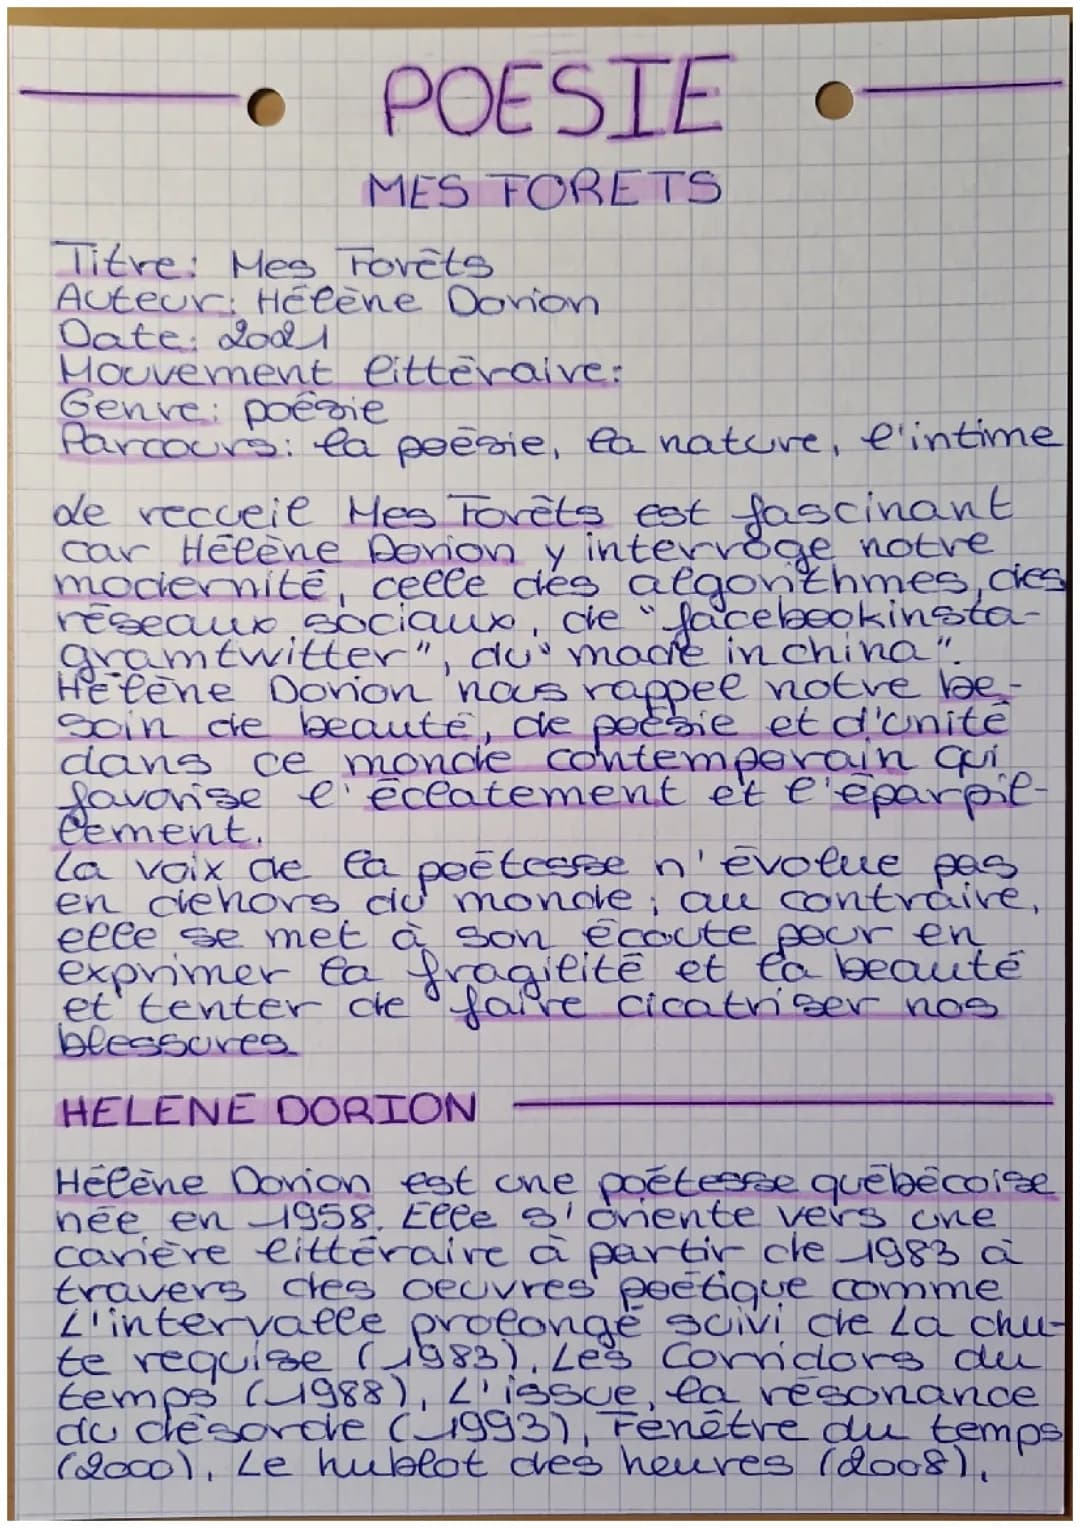 POESIE
MES FORETS
Titre: Mes Forêts
Auteur: Hélène Dorion
Date: 2021
Mouvement littéraire:
Genre: poésie
Parcours: la poésie, la nature, l'intime
Le recueil Mes Forêts est fascinant
car Hélène Dorion y interroge notre
modernité, celle des algorithmes, des
réseaux sociaux, de "facebookinsta-
gramtwitter", du "made in china".
Hélène Dorion nous rappel notre be-
soin de beauté, de poésie et d'unité
dans ce monde contemporain qui
favorise l'éclatement et l'éparpil-
lement.
La voix de la poétesse n'évolue pas
en dehors du monde ; au contraire,
elle se met à son écoute pour en
exprimer la fragilité et la beauté
et tenter de faire cicatriser nos
blessures.
HELENE DORION
Hélène Dorion est une poétesse québécoise
née en 1958. Elle s'oriente vers une
carière littéraire à partir de 1983 à
travers des oeuvres poétique comme
L'intervalle prolongé suivi de La chu-
te requise (1983), Les Corridors du
temps (1988), L'issue, la résonance
du désorde (1993), Fenêtre du temps
(2000), Le hublot des heures (2008),